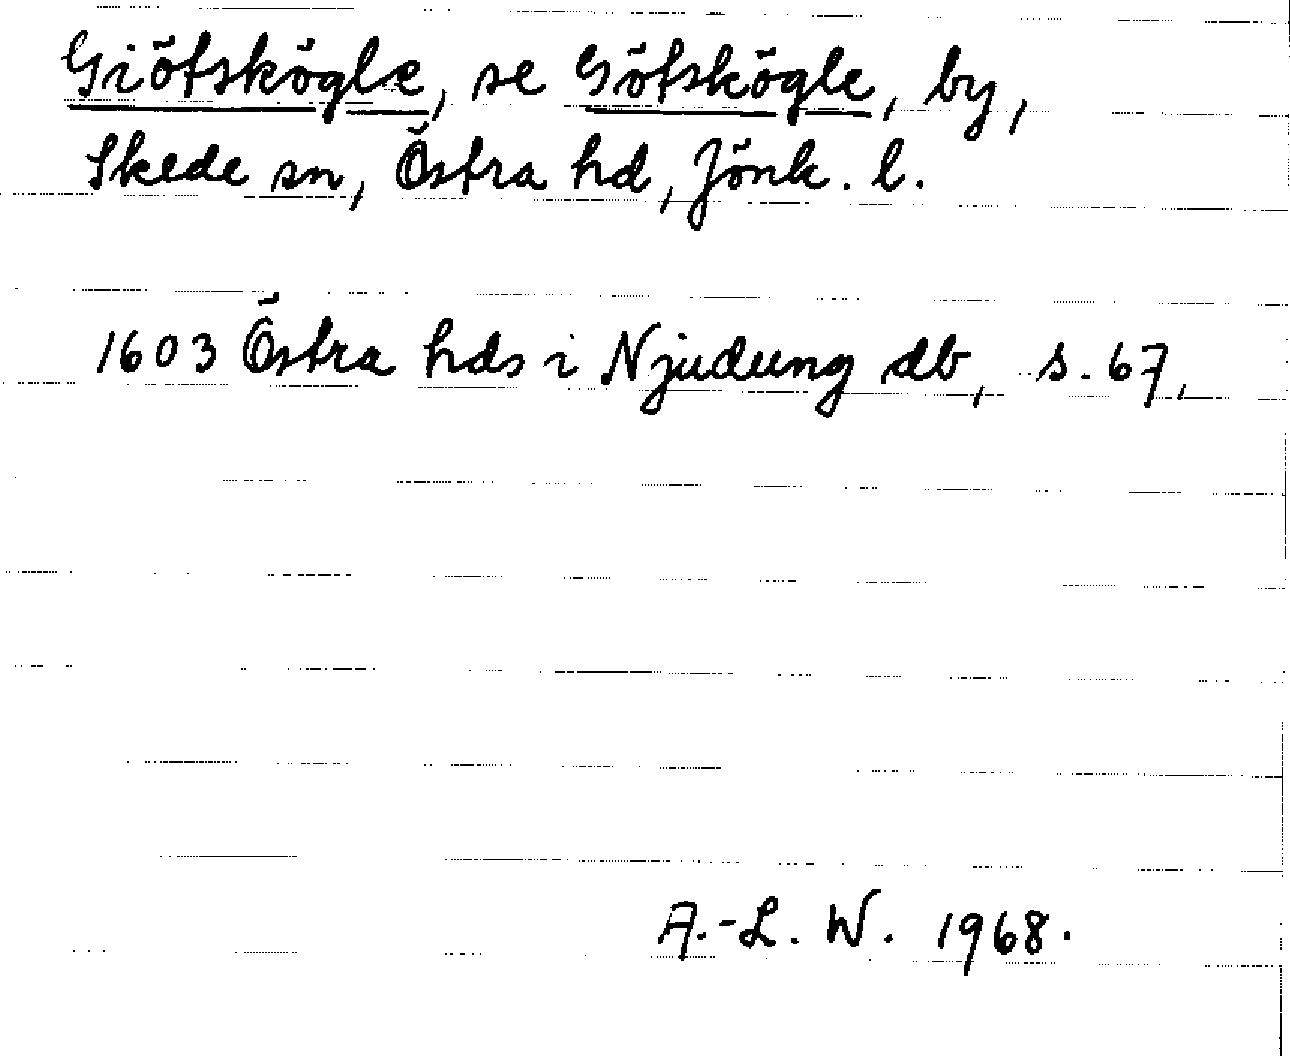 Giötskögle, se Götskögle, by,
Skede sn, Östra hd, Jönk. l.
1603 Östra hds i Njudung db, s. 67,
A.-L. W. 1968.